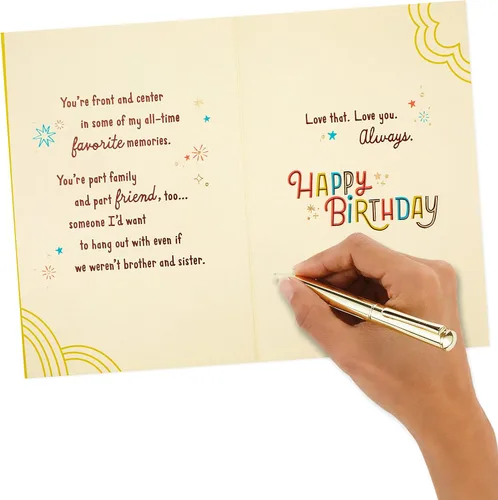 You're front and center
in some of my all-time
favorite memories.
You're part family
and part friend, too...
someone I'd want
to hang out with even if
we weren't brother and sister.
Love that. Love you.
Always.
HAPPY
BIRTHDAY